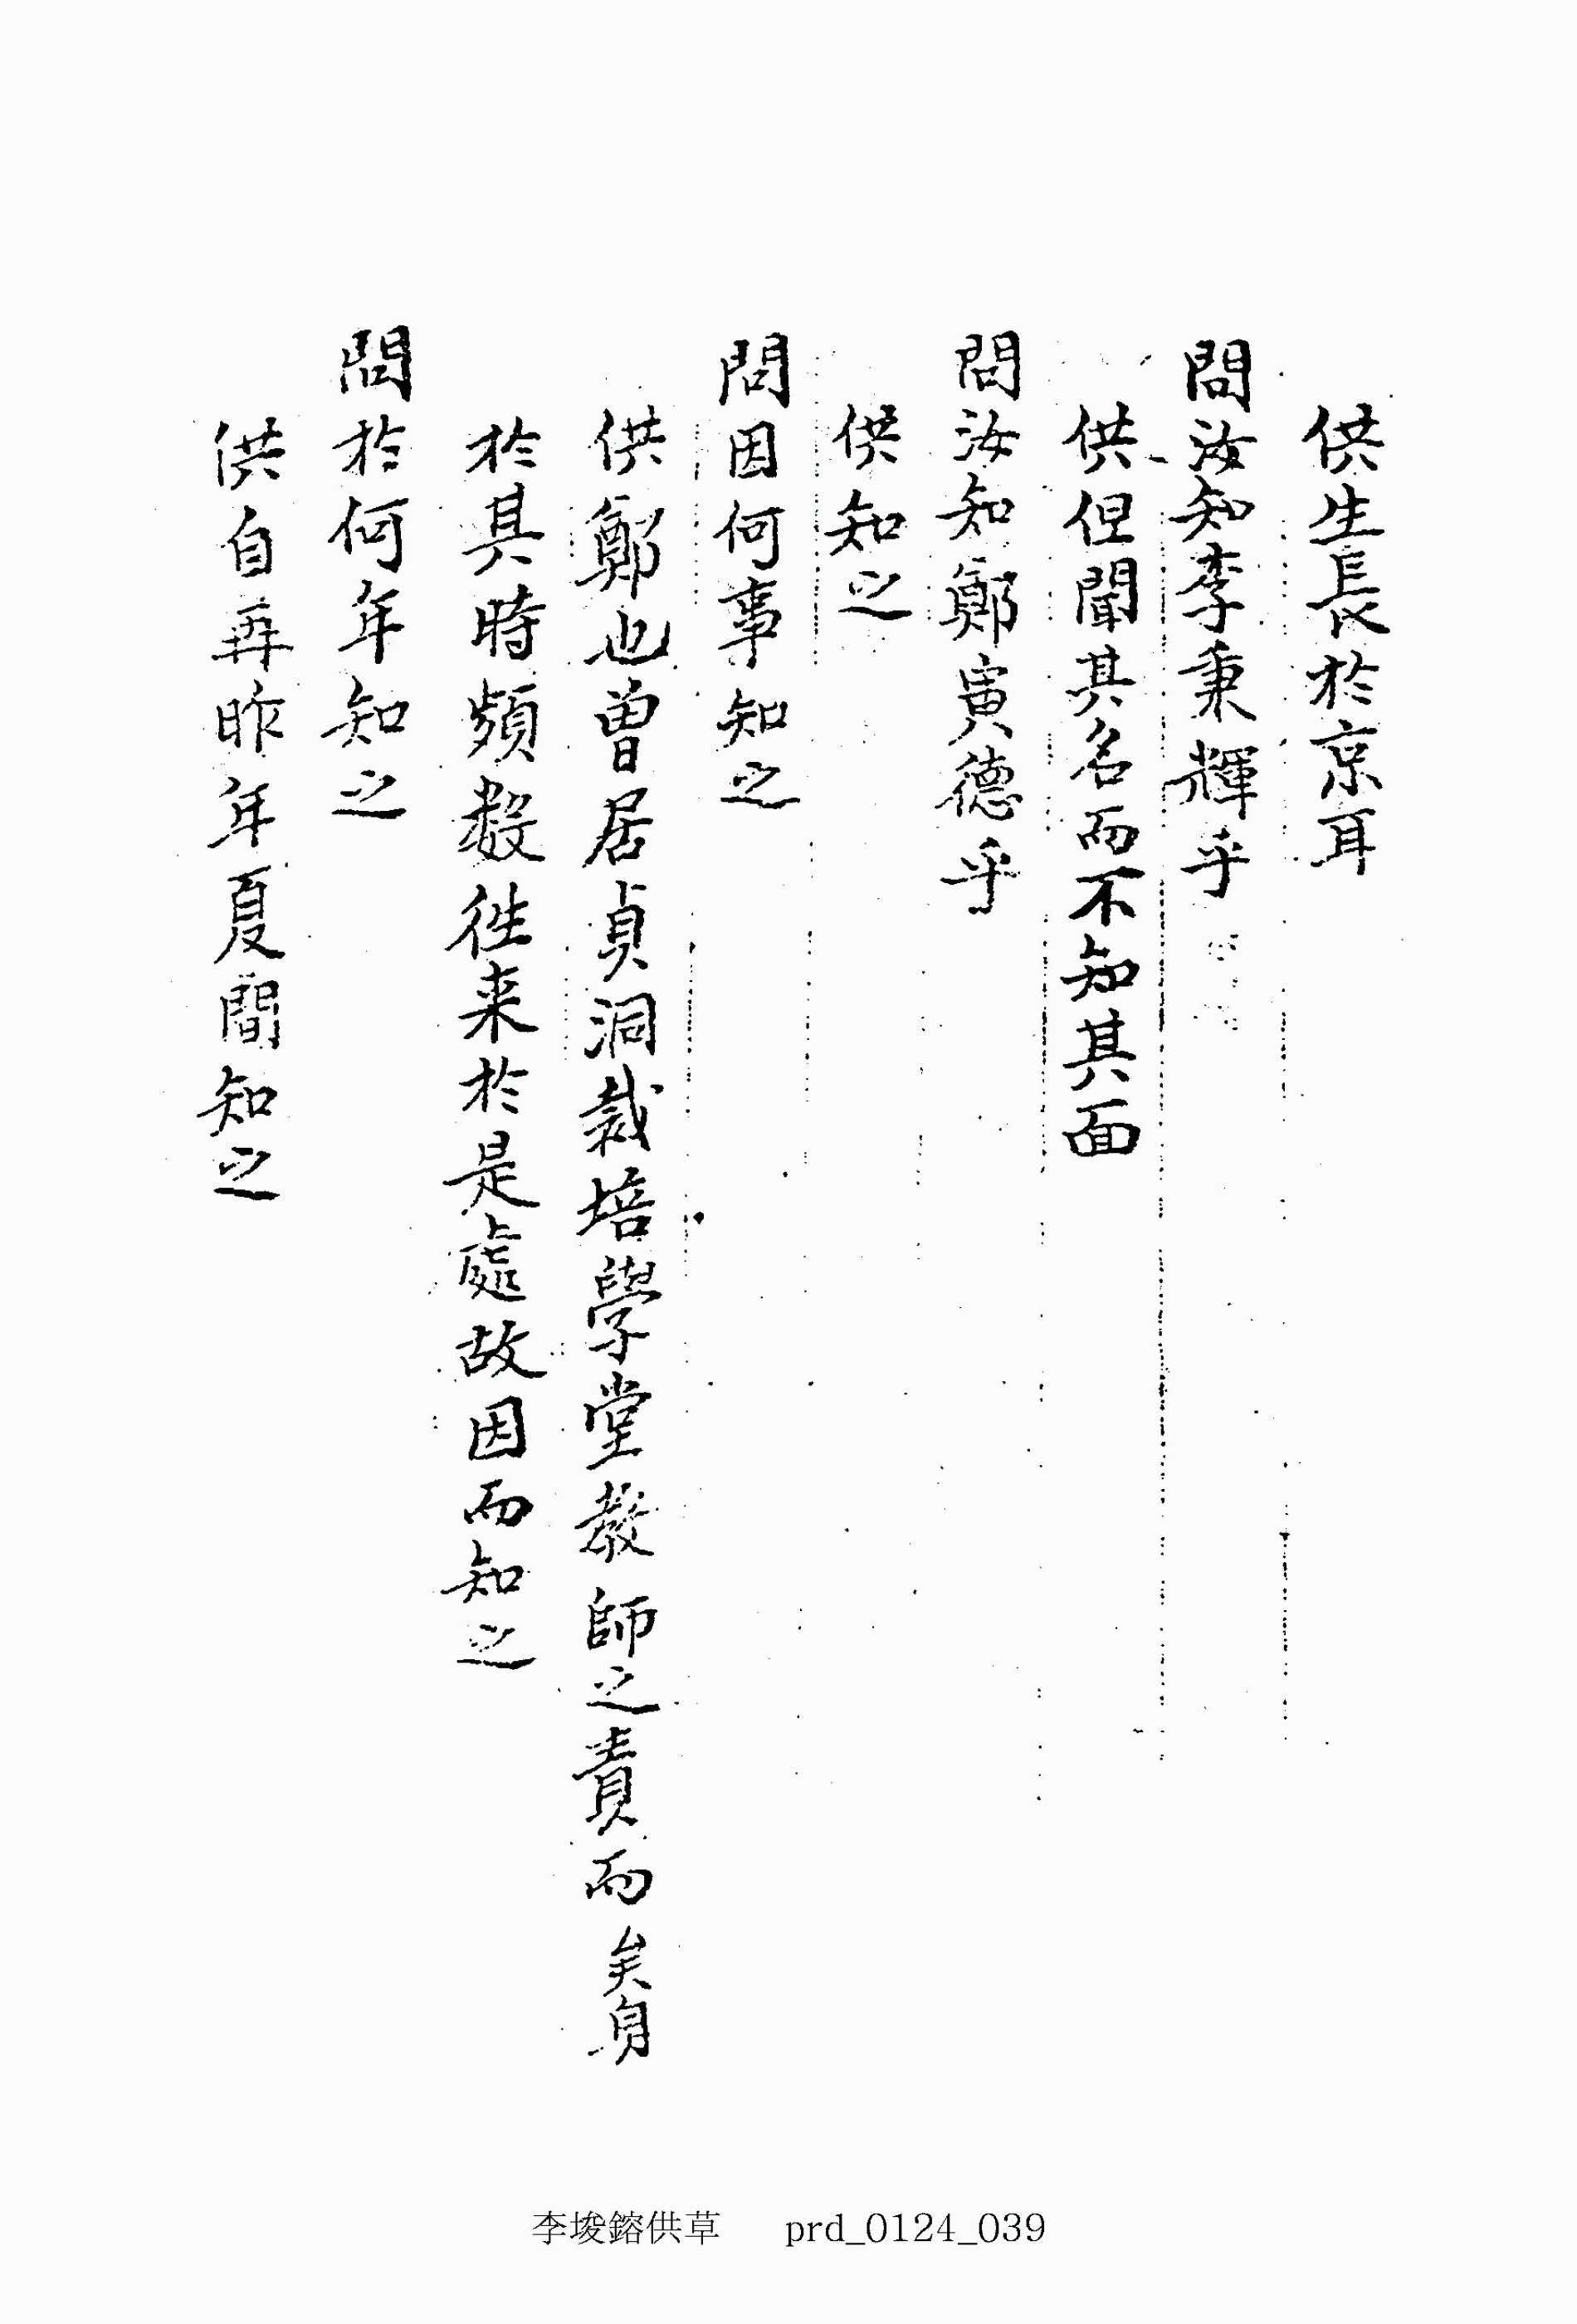 供生長於京耳
問汝知李秉輝乎
供但聞其名而不知其面
問汝知鄭寅德乎
供知之
問因何事知之
供鄭也曾居貞洞栽培學堂教師之責而矣身
於其時頻數徃来於是處故因而知之
問於何年知之
供自再昨年夏間知之
李埈鎔供草 prd_0124_039